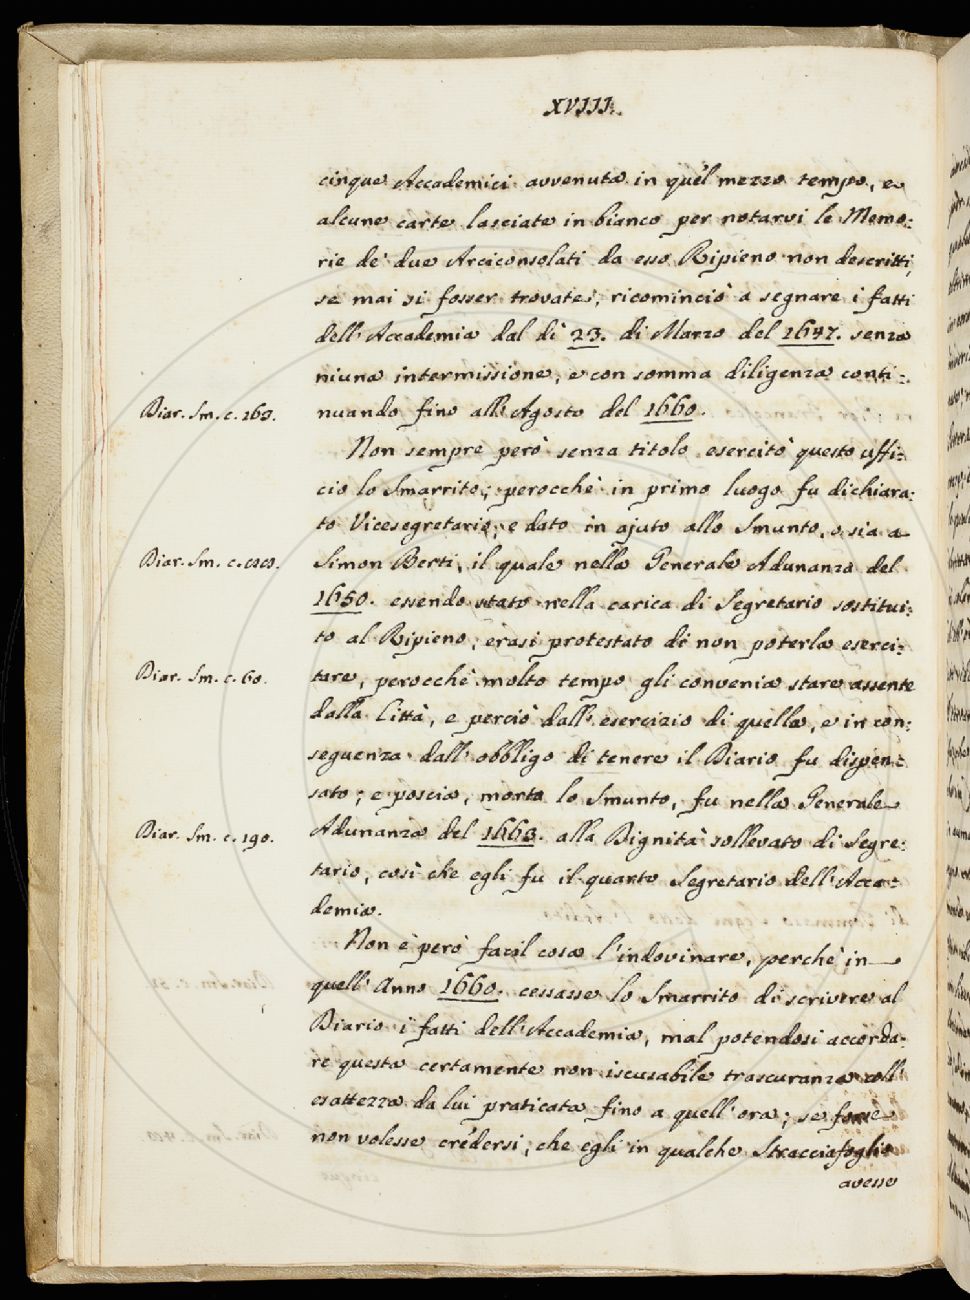 XVIII.
cinque Accademici avvenuta in quel mezzo tempo, e
alcune carte lasciate in bianco per notarvi le Memo:
rie de' due Arciconsolati da esso Ripieno non descritti,
se mai si fosser trovate, ricominciò a segnare i fatti
dell'Accademia dal dì 23. di Marzo del 1647. senza
niuna intermissione, e con somma diligenza conti:
Diar. Sm. c. 163.
nuando fino all'Agosto del 1660.
Non sempre però senza titolo esercitò questo uffi:
cio lo Smarrito; perocchè in primo luogo fu dichiara:
to Vicesegretario, e dato in ajuto allo Smunto, o sia a
Diar. Sm. c.
Simon Berti, il quale nella Generale Adunanza del
1650. essendo stato nella carica di Segretario sostitui:
to al Ripieno, erasi protestato di non poterla eserci:
Diar. Sm. c. 60.
tare, perocchè molto tempo gli convenia stare assente
dalla Città, e perciò dall'esercizio di quella, e in con:
seguenza dall'obbligo di tenere il Diario fu dispen:
sato; e poscia, morto lo Smunto, fu nella Generale
Diar. Sm. c. 190.
Adunanza del 1663. alla Dignità sollevato di Segre:
tario, così che egli fu il quarto Segretario dell'Acca:
demia.
Non è però facil cosa l'indovinare, perchè in
quell'Anno 1660. cessasse lo Smarrito di scrivere al
Diario i fatti dell'Accademia, mal potendosi accorda:
re questa certamente non iscusabile trascuranza coll'
esattezza da lui praticata fino a quell'ora; se forse
non volesse credersi, che egli in qualche Stracciafoglio
avesse